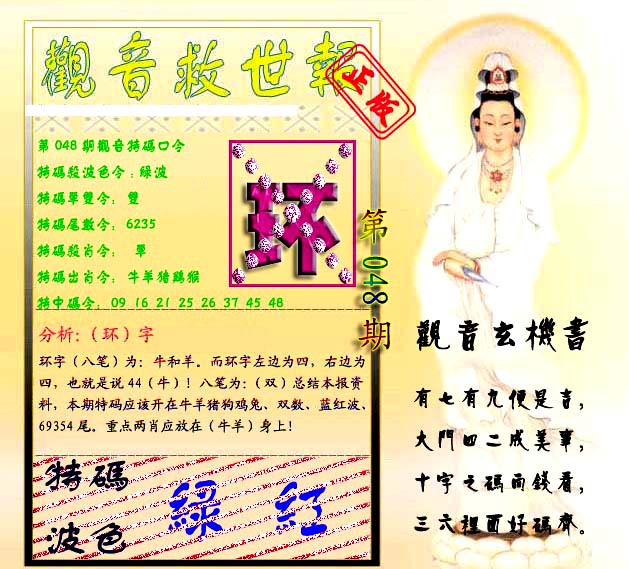 觀音救世報
正版
第048期觀音特碼口令
特碼殺波色令：綠波
特碼單雙令： 雙
特碼尾數令： 6235
特碼殺肖令： 單
特碼出肖令： 牛羊猪鷄猴
特中碼令： 09 16 21 25 26 37 45 48
环
第048期
分析：（环）字
环字（八笔）为：牛和羊。而环字左边为四，右边为
四，也就是说44（牛）！八笔为：（双）总结本报资
料，本期特码应该开在牛羊猪狗鸡兔、双数、蓝红波、
69354尾。重点两肖应放在（牛羊）身上！
特碼
波色
綠 紅
觀音玄機書
有七有九便是吉，
大門四二成美事，
十字之碼而錢看，
三六裡面好碼齊。